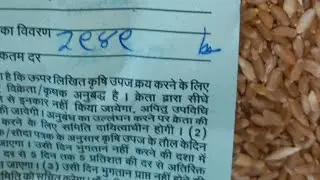 का विवरण २९४९
कतम दर
है कि ऊपर लिखित कृषि उपज क्रय करने के लिए
विक्रेता/कृषक अनुबद्ध है । क्रेता द्वारा सीधे
से इनकार नहीं किया जावेगा, अपितु उपविधि
की जावेगी। अनुबंध का उल्लंघन करने पर क्रेता की
करने के लिए समिति दायित्वाधीन होगी । (2)
/सौदा पत्रक के अनुसार कृषि उपज के तौल केदिन
जाएगा । उसी दिन भुगतान नहीं करने की दशा में
दर से 5 दिन तक 5 प्रतिशत की दर से अतिरिक्त
जाएगा । उसी दिन भुगतान प्राप्त नहीं होने